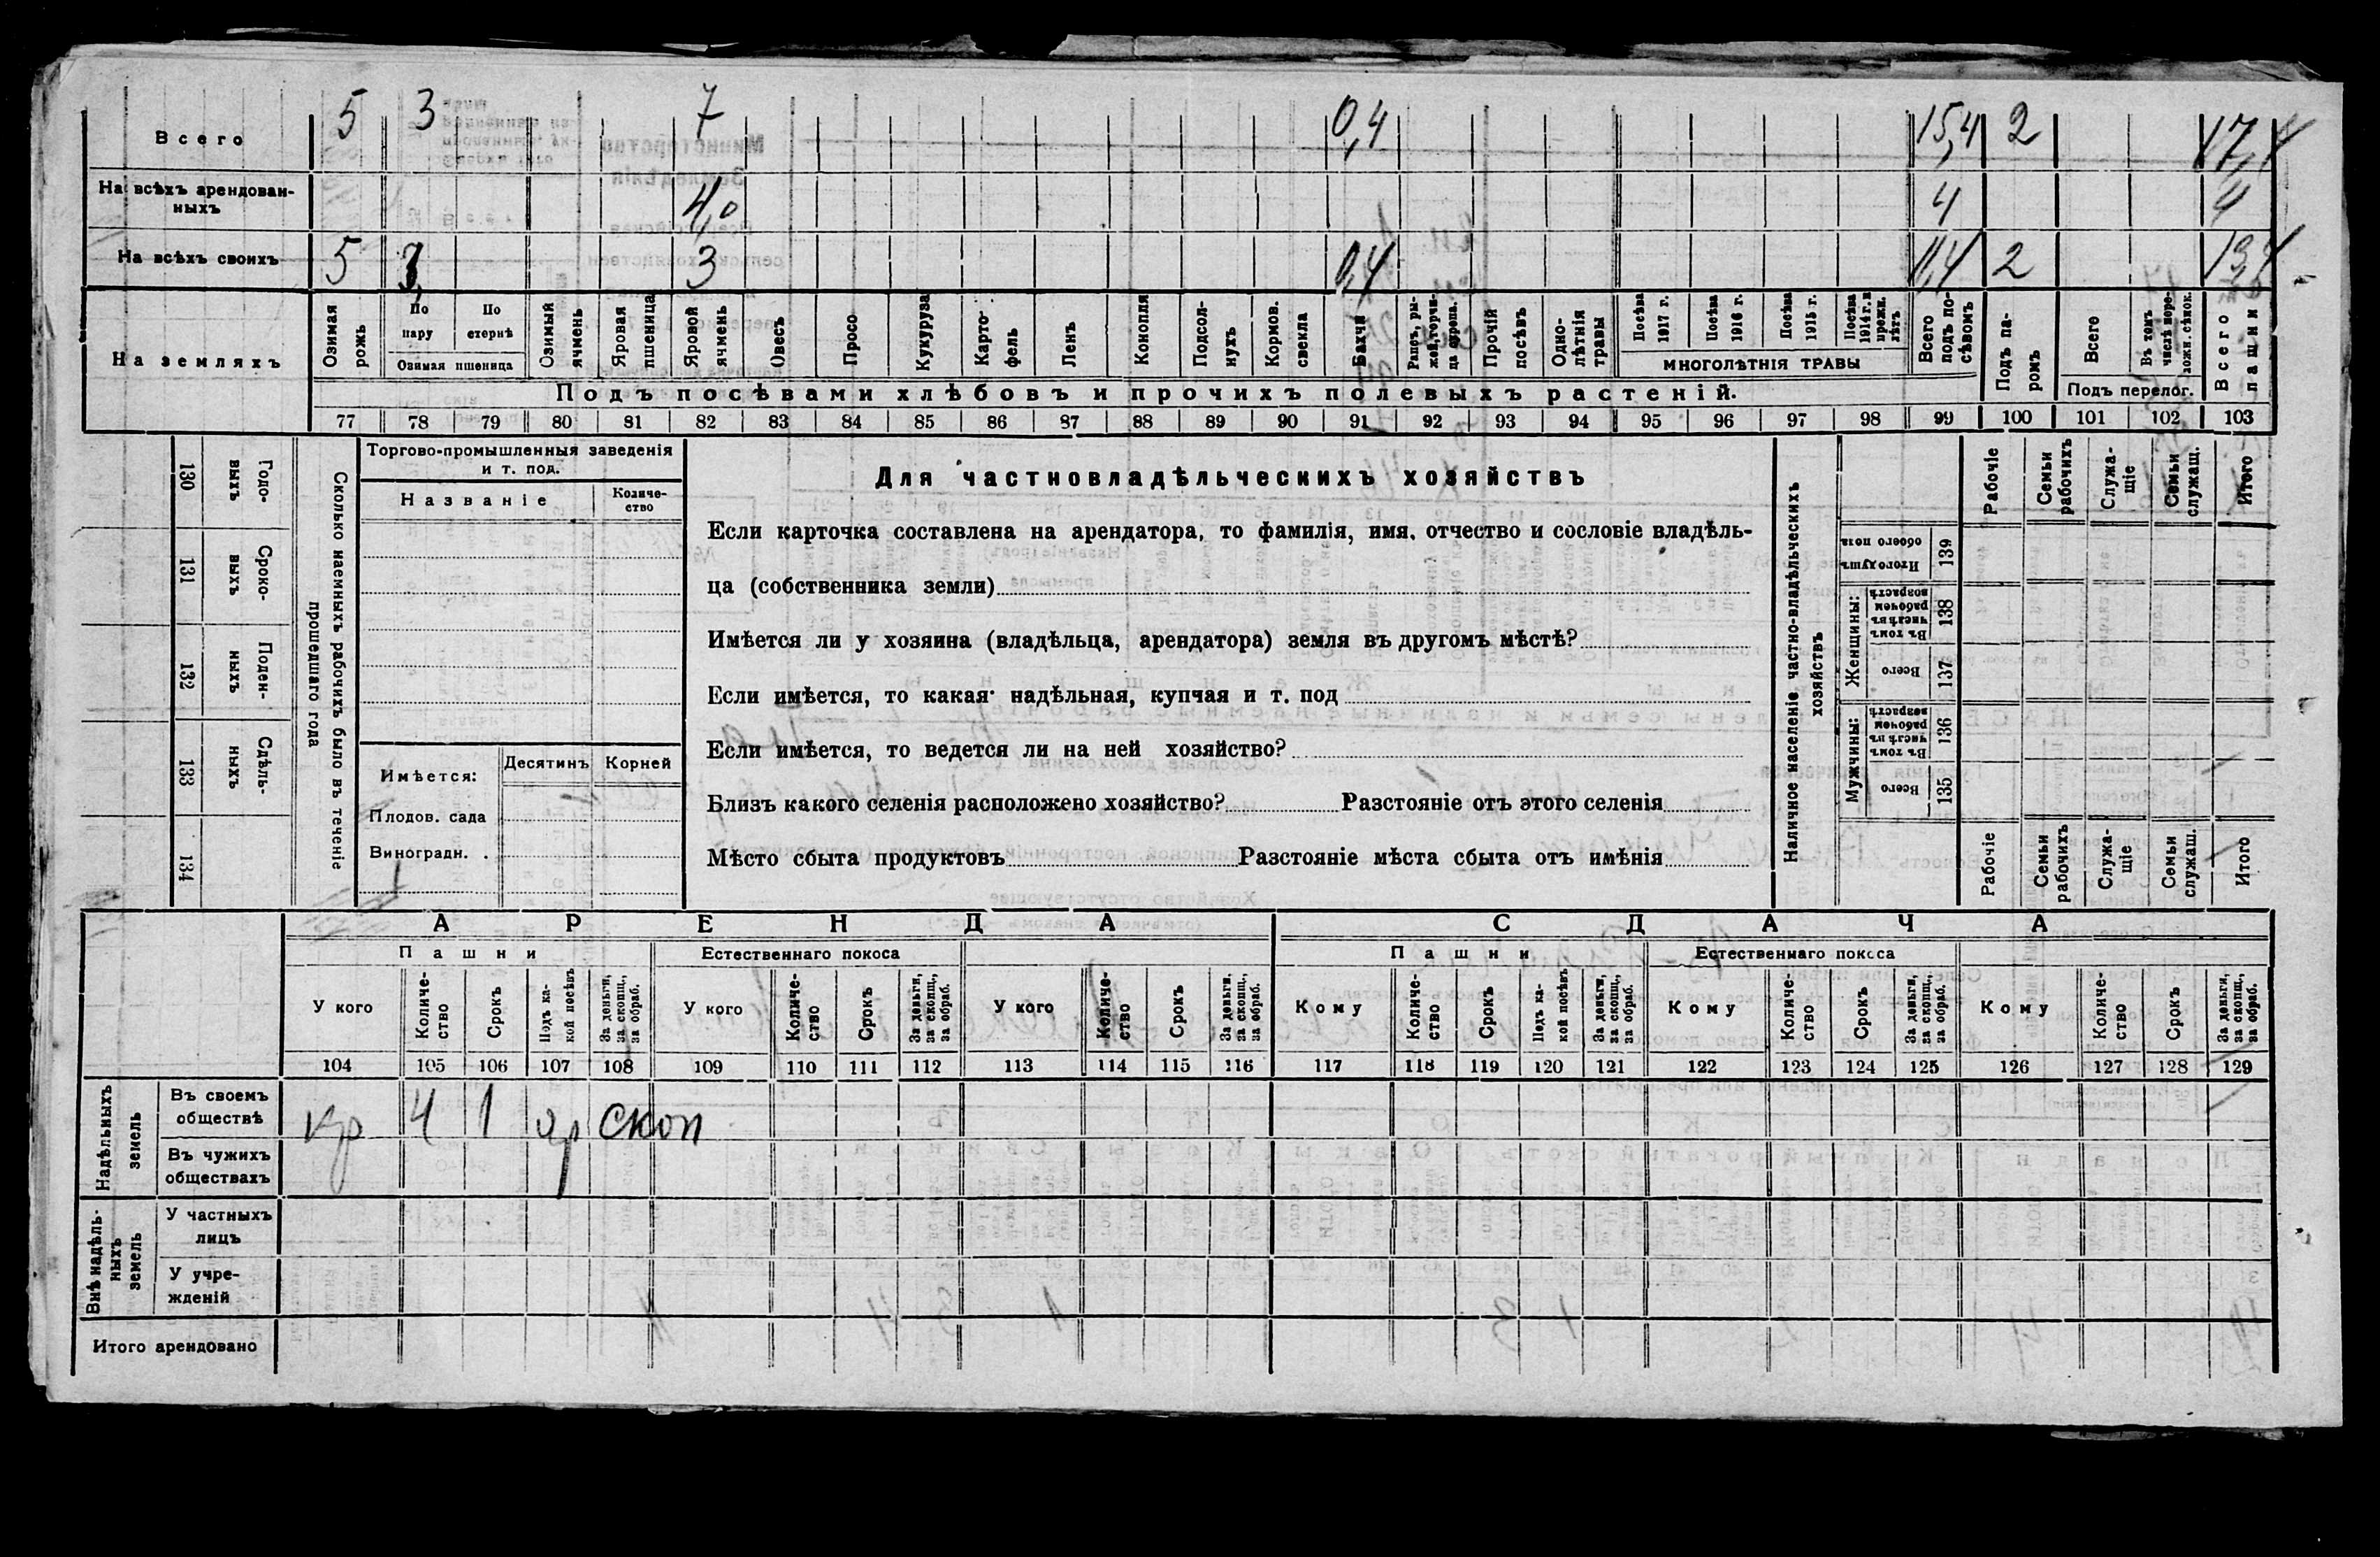 Всего 5 3 7 0,4 15,4 2 17,4
На всѣхъ арендован-
ныхъ 4,0 4 4
На всѣхъ своихъ 5 3 3 0,4 11,4 2 13,4
На земляхъ
Озимая рожь
По пару
По стернѣ
Озимая пшеница
Озимый ячмень
Яровая пшеница
Яровой ячмень
Овесъ
Просо
Кукуруза
Карто-
фель
Ленъ
Конопля
Подсол-
нухъ
Кормов. свекла
Бахчи
Рапсъ, ры-
жей, горчи-
ца и проп.
Прочій посѣвъ
Одно-
лѣтнія травы
Посѣва 1917 г.
Посѣва 1916 г.
Посѣва 1915 г.
Посѣва 1914 г. и прежн. лѣтъ
МНОГОЛѢТНІЯ ТРАВЫ
Всего подъ по-
сѣвомъ
Подъ па-
ромъ
Всего
Въ томъ числѣ пере-
ложн. сѣнок.
Подъ перелог.
Всего пашни
Подъ посѣвами хлѣбовъ и прочихъ полевыхъ растеній.
77 78 79 80 81 82 83 84 85 86 87 88 89 90 91 92 93 94 95 96 97 98 99 100 101 102 103
130 Годо-
выхъ
131 Сроко-
выхъ
132 Поден-
ныхъ
133 Сдѣль-
ныхъ
134
Сколько наемныхъ рабочихъ было въ теченіе
прошедшаго года
Торгово-промышленныя заведенія
и т. под.
Названіе
Количе-
ство
Имѣется:
Десятинъ
Корней
Плодов. сада
Виноградн.
Для частновладѣльческихъ хозяйствъ
Если карточка составлена на арендатора, то фамилія, имя, отчество и сословіе владѣль-
ца (собственника земли)
Имѣется ли у хозяина (владѣльца, арендатора) земля въ другомъ мѣстѣ?
Если имѣется, то какая· надѣльная, купчая и т. под
Если имѣется, то ведется ли на ней хозяйство?
Близъ какого селенія расположено хозяйство? Разстояніе отъ этого селенія
Мѣсто сбыта продуктовъ Разстояніе мѣста сбыта отъ имѣнія
Наличное населеніе частно-владѣльческихъ
хозяйствъ
Рабочіе
Семьи рабочихъ
Служа-
щіе
Семьи служащ.
Итого
Итого душъ обоего пола 139
Женщины:
Въ томъ числѣ въ рабочемъ возрастѣ 138
Всего 137
Мужчины:
Въ томъ числѣ въ рабочемъ возрастѣ 136
Всего 135
Рабочіе
Семьи рабочихъ
Служа-
щіе
Семьи служащ.
Итого
АРЕНДА
СДАЧА
Пашни
Естественнаго покоса
Пашни
Естественнаго покоса
У кого
Количе-
ство
Срокъ
Подъ ка-
кой посѣвъ
За деньги, за скопщ., за обраб.
У кого
Количе-
ство
Срокъ
За деньги, за скопщ., за обраб.
У кого
Количе-
ство
Срокъ
За деньги, за скопщ., за обраб.
Кому
Количе-
ство
Срокъ
Подъ ка-
кой посѣвъ
За деньги, за скопщ., за обраб.
Кому
Количе-
ство
Срокъ
За деньги, за скопщ., за обраб.
Кому
Количе-
ство
Срокъ
За деньги, за скопщ., за обраб.
104 105 106 107 108 109 110 111 112 113 114 115 116 117 118 119 120 121 122 123 124 125 126 127 128 129
Надѣльныхъ
земель
Въ своемъ
обществѣ
кр 4 1 яр скоп
Въ чужихъ
обществахъ
Внѣ надѣль-
ныхъ
земель
У частныхъ
лицъ
У учре-
жденій
Итого арендовано